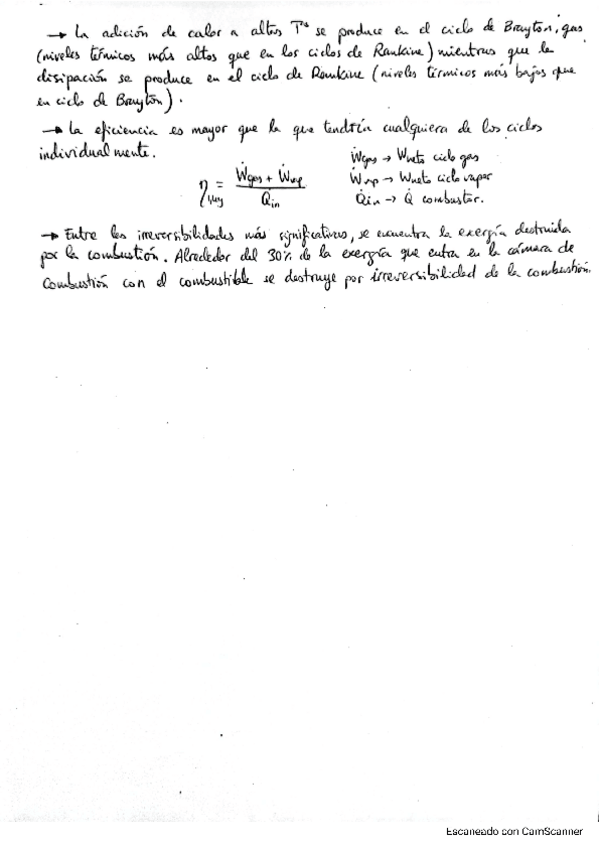 → La adición de calor a altas Tªs se produce en el ciclo de Brayton, gas
(niveles térmicos más altos que en los ciclos de Rankine) mientras que la
disipación se produce en el ciclo de Rankine (niveles térmicos más bajos que
en ciclo de Brayton).
→ La eficiencia es mayor que la que tendría cualquiera de los ciclos
individualmente.
η = (Ẇgas + Ẇvap) / Q̇in
Ẇgas → Wneto ciclo gas
Ẇvap → Wneto ciclo vapor
Q̇in → Q̇ combustor.
→ Entre las irreversibilidades más significativas, se encuentra la exergía destruida
por la combustión. Alrededor del 30% de la exergía que entra en la cámara de
combustión con el combustible se destruye por irreversibilidad de la combustión.
Escaneado con CamScanner